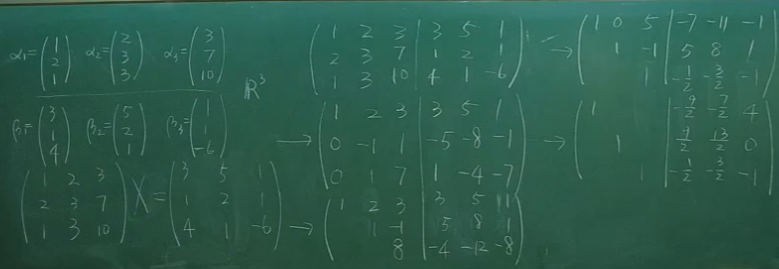 α₁=(1 2 1) α₂=(2 3 3) α₃=(3 7 10) ℝ³
β₁=(3 1 4) β₂=(5 2 1) β₃=(1 1 -6)
(1 2 3
2 3 7
1 3 10) X = (3 5 1
1 2 1
4 1 -6)
(1 2 3 | 3 5 1
2 3 7 | 1 2 1
1 3 10 | 4 1 -6)
→ (1 2 3 | 3 5 1
0 -1 1 | -5 -8 -1
0 1 7 | 1 -4 -7)
→ (1 2 3 | 3 5 1
1 -1 | 5 8 1
8 | -4 -12 -8)
→ (1 0 5 | -7 -11 -1
1 -1 | 5 8 1
1 | -1/2 -3/2 -1)
→ (1 | -9/2 -7/2 4
1 | 9/2 13/2 0
1 | -1/2 -3/2 -1)